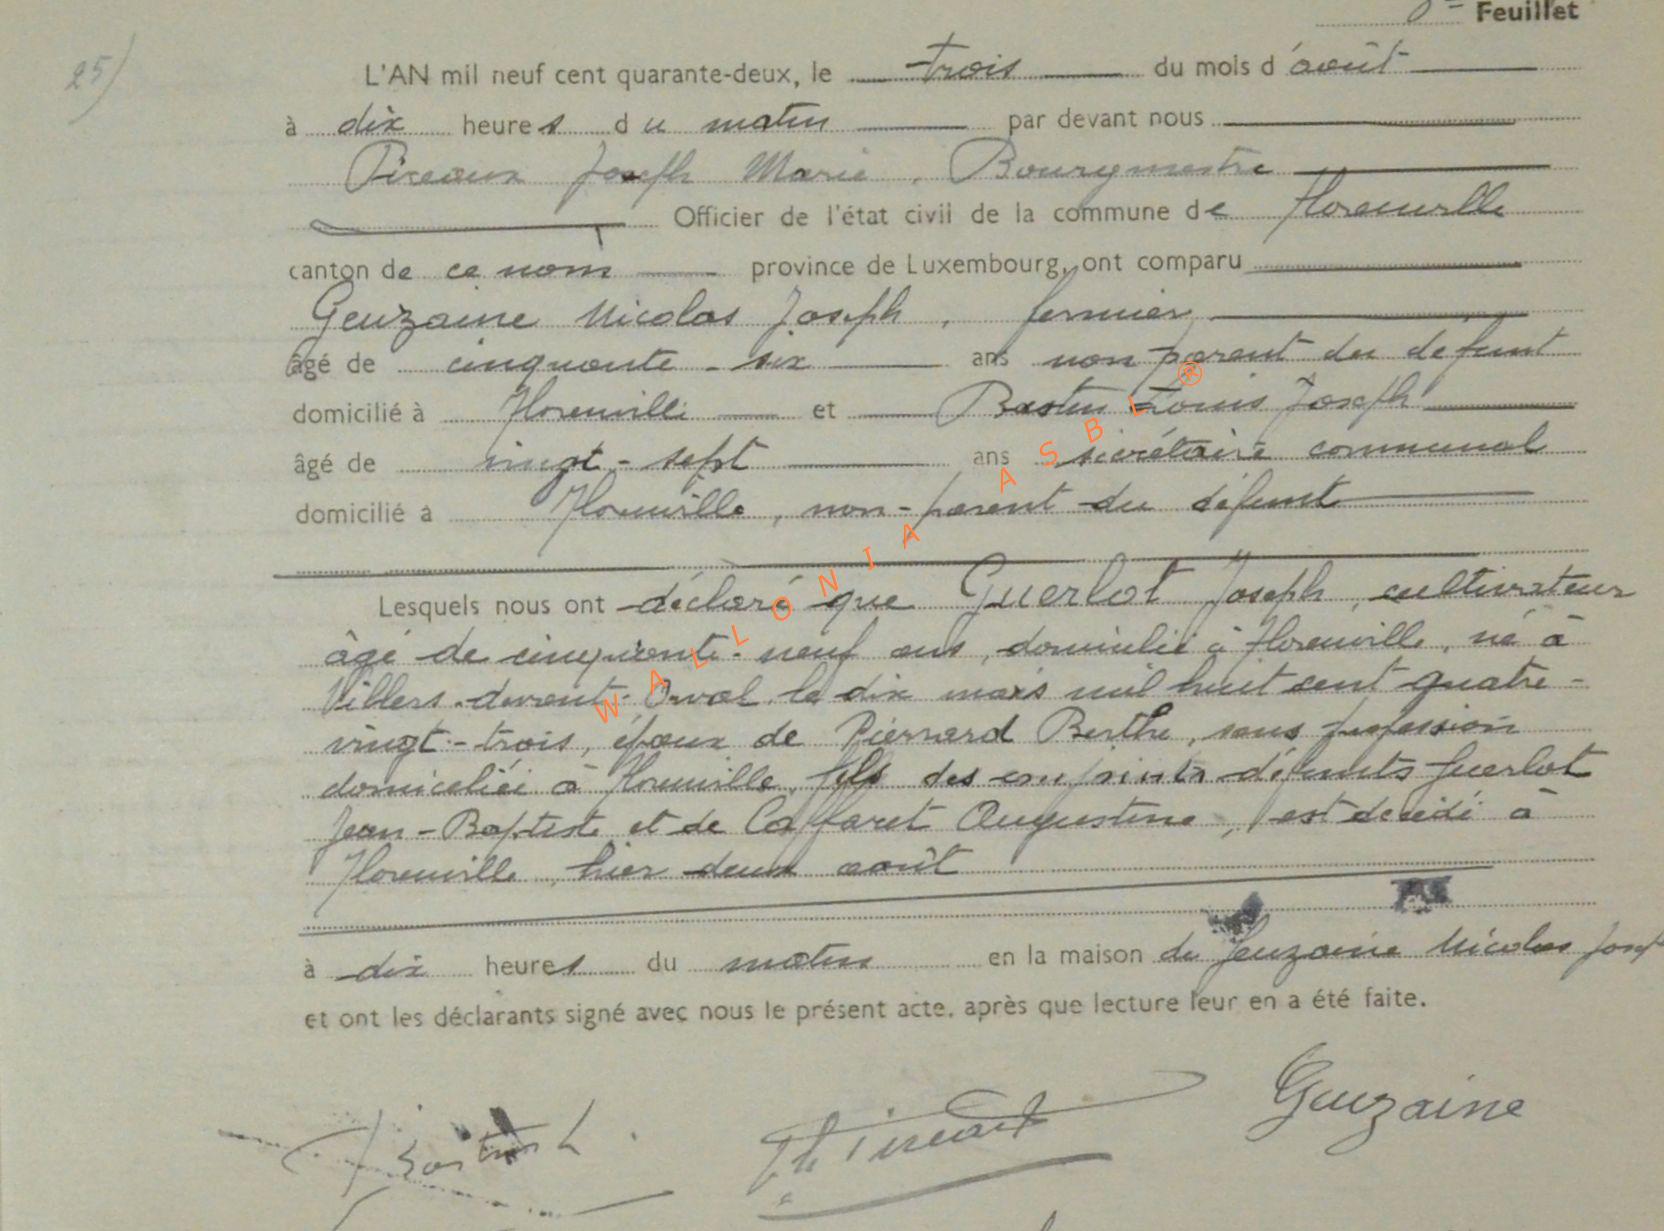 Feuillet
25)
L'AN mil neuf cent quarante-deux, le trois du mois d'août
à dix heures du matin par devant nous
Joseph Marie, Bourgmestre
Officier de l'état civil de la commune de Florenville
canton de ce nom province de Luxembourg, ont comparu
Geuzaine Nicolas Joseph, fermier,
âgé de cinquante-six ans non parent du défunt
domicilié à Florenville et Bastin Louis Joseph
âgé de vingt-sept ans secrétaire communal
domicilié à Florenville, non-parent du défunt
Lesquels nous ont déclaré que Guerlot Joseph, cultivateur
âgé de cinquante-neuf ans, domicilié à Florenville, né à
Villers-devant-Orval le dix mars mil huit cent quatre-
vingt-trois, époux de Pierrard Berthe, sans profession
domiciliée à Florenville, fils des conjoints défunts Guerlot
Jean-Baptiste et de Caffaret Augustine, est décédé à
Florenville, hier deux août
à dix heures du matin en la maison de Geuzaine Nicolas Joseph
et ont les déclarants signé avec nous le présent acte, après que lecture leur en a été faite.
Bastin L Geuzaine
WALLONIA ASBL ®